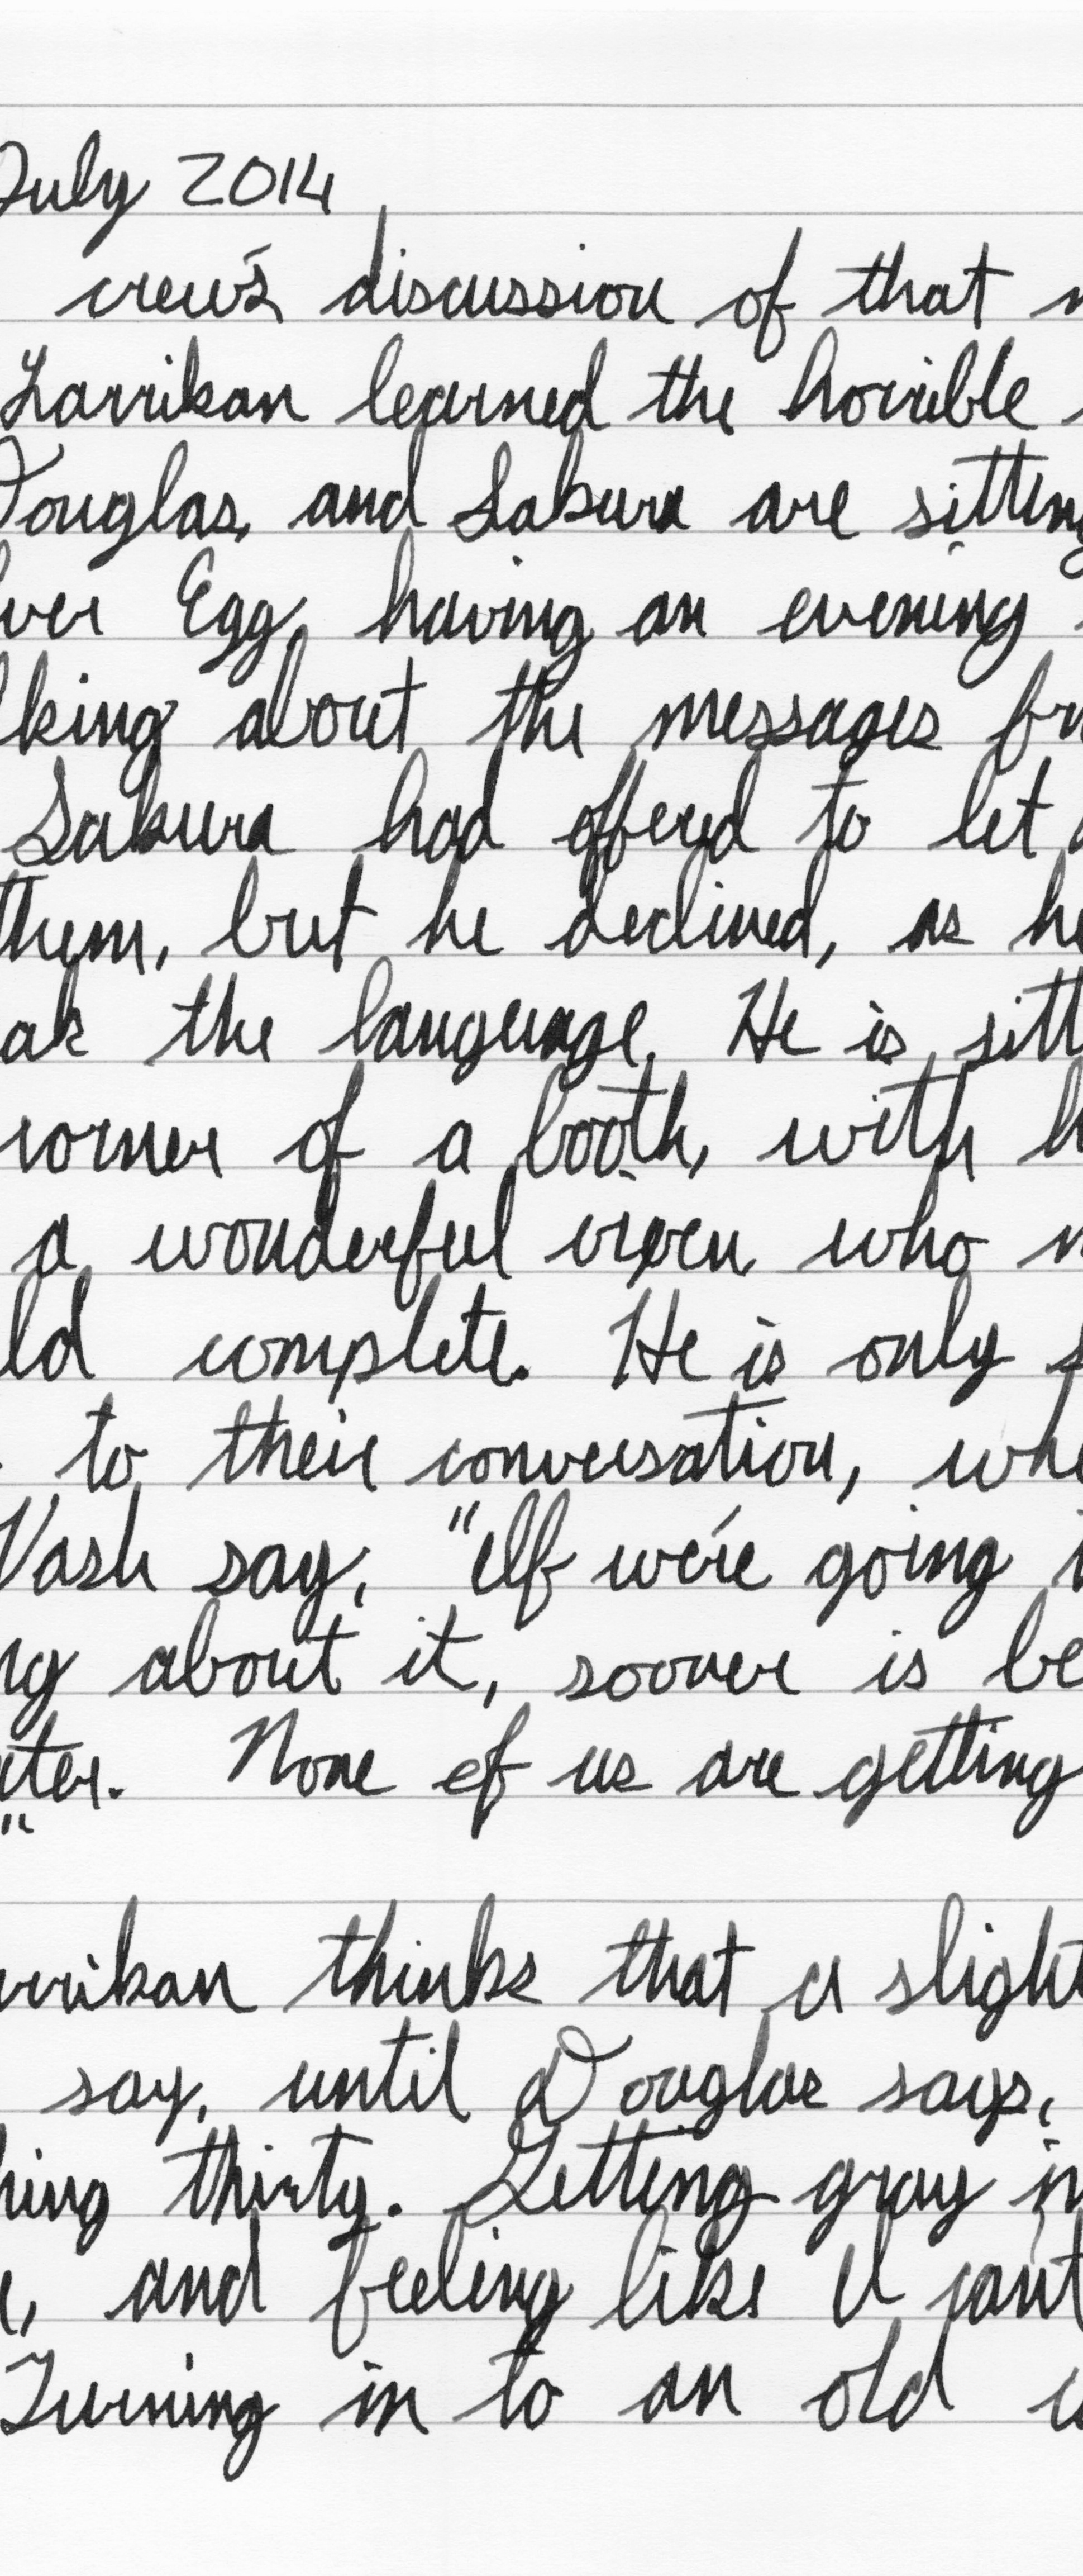 July 2014
crew's discussion of that
Larrikan learned the horrible
Douglas, and Sakura are sitting
ver Egg, having an evening
lking about the messages fr
Sakura had offered to let
them, but he declined, as he
ak the language. He is sitt
corner of a booth, with h
a wonderful vixen who
ld complete. He is only
to their conversation, whe
Vash say, "If we're going
ng about it, sooner is be
ater. None of us are getting
"
rrikan thinks that a slight
say, until Douglas says,
hing thirty. Getting gray in
, and feeling like I can't
Turning in to an old